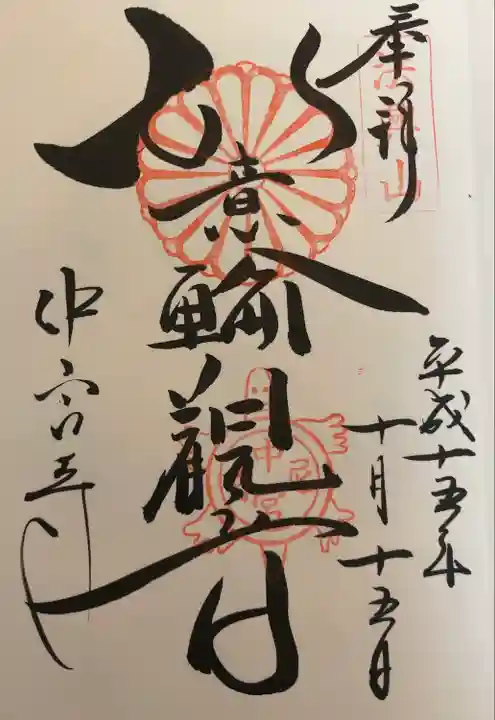 奉拝
法興山
平成十五年
十月十五日
如意輪観音
中宮寺